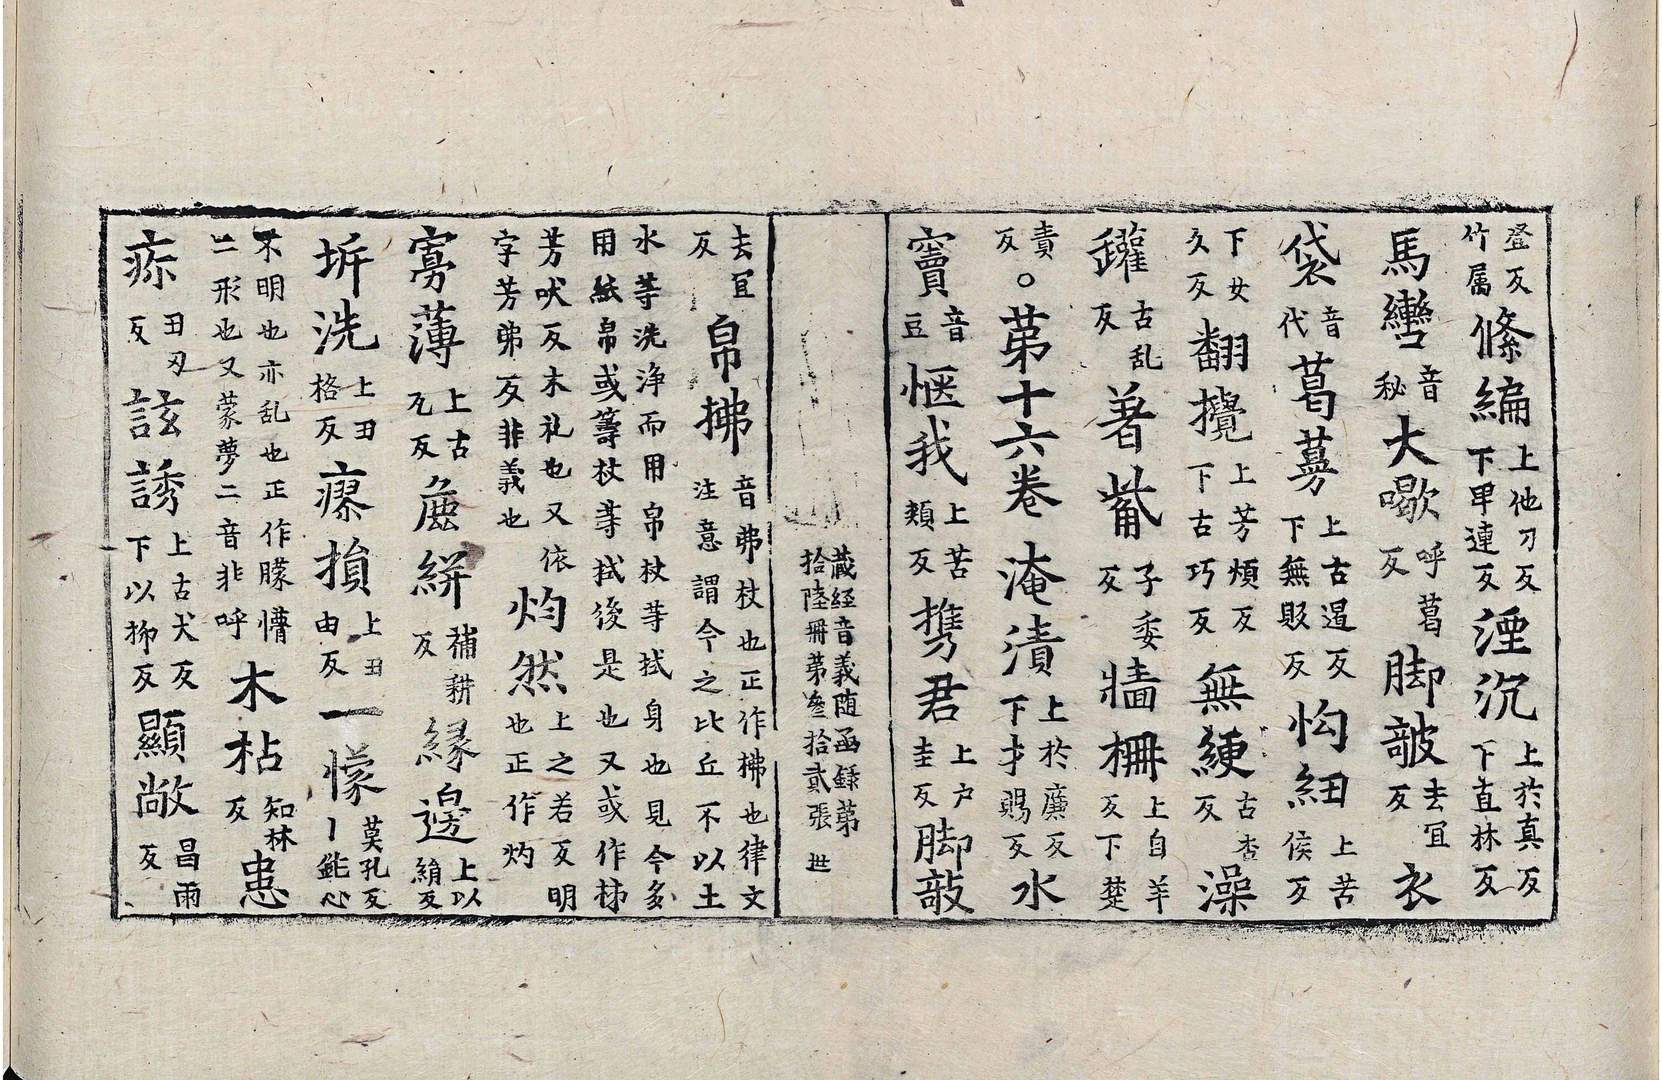 登反竹属絛編上他刀反下卑連反湮沉上於真反下直林反
馬轡音秘大歇呼葛反脚皷去冝反衣
袋音代葛蔓上古遏反下無販反怐紐上苦侯反
下女久反翻攪上芳煩反下古巧反無綆古杏反澡
鑵古乱反著觜子委反牆柵上自羊反下楚
責反○苐十六卷淹漬上於廉反下才賜反水
竇音豆惬我上苦頰反携君上户圭反脚敧
藏經音義随函録苐拾陸冊苐叄拾貳張 丗
去冝反帛拂音弗杖也正作柫也律文注意謂今之比丘不以土
水等洗浄而用帛杖等拭身也見今多用紙帛或籌杖等拭後是也又或作柹
芳吠反木札也又依字芳弗反非義也灼然上之若反明也正作灼
寡薄上古瓦反麁絣補耕反縁邊上以絹反
坼洗上丑格反瘳損上丑由反一懞莫孔反丨能心
不明也亦乱也正作朦懵二形也又蒙夢二音非呼木枯知林反患
疢丑刃反詃誘上古犬反下以栁反顯敞昌兩反